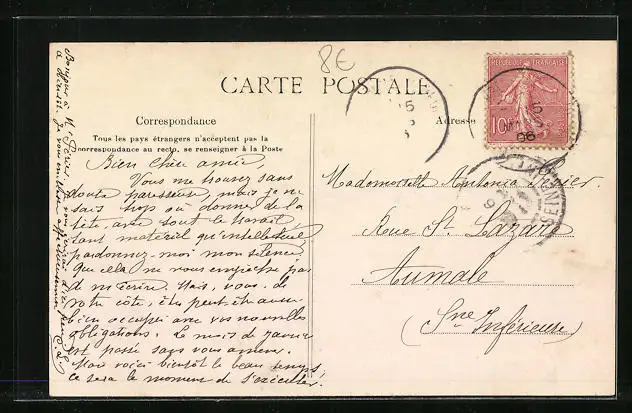 8E
CARTE POSTALE
Correspondance
Adresse
Tous les pays étrangers n'acceptent pas la
correspondance au recto, se renseigner à la Poste
RÉPUBLIQUE FRANÇAISE
10
15
5
06
Bien chère amie,
Vous me trouvez sans
doute paresseuse, mais je ne
sais trop où donner de la
tête, avec tout le travail
tant matériel qu'intellectuel
pardonnez-moi mon silence.
Que cela ne vous empêche pas
de m'écrire. Mais, vous, de
votre côté, êtes peut-être aussi
bien occupée avec vos nouvelles
obligations. Le mois de Janvier
est passé sans vous amener.
Mais voici bientôt le beau temps,
ce sera le moment de s'exécuter.
Mademoiselle Antonia
Rue St Lazare
Aumale
(Sne Inférieure)
Bonjour à Mr
je vous